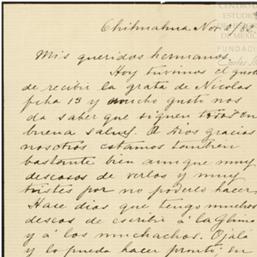 CENTRO
ESTUDI
DE MÉXIC
FUNDAC
Chihuahua Nov. 2/82
Mis queridos hermanos.
Hoy tuvimos el gust
de recibir la grata de Nicolas
fcha 19 y mucho gusto nos
da saber que siguen todos en
buena salud. A Dios gracias
nosotros estamos tambien
bastante bien aunque muy
deseosos de verlos y muy
tristes por no poderlo hacer.
Hace dias que tengo muchos
deseos de escribir á la
y á los muchachos. Ojalá
y lo pueda hacer pronto. En